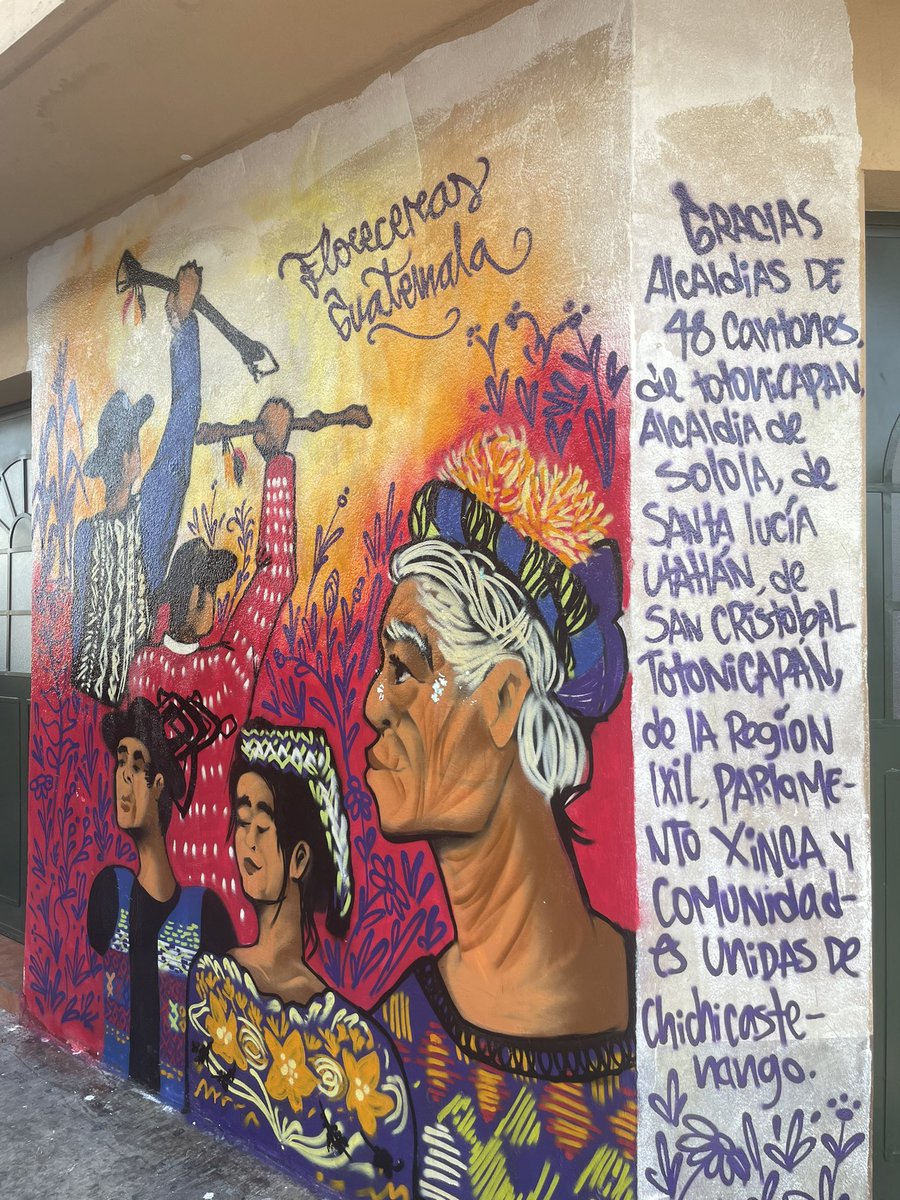 Floreceras
Guatemala
GRACIAS
AlcalDIAS DE
48 CANTONES.
de TOTONICAPAN,
AlcalDIA de
SOLOLA, de
SANTA LUCÍA
UtAtlÁN, de
SAN CRISTOBAL
TOTONICAPÁN,
de lA RegIÓN
IXIL, PARlAME-
NTO XINCA Y
COMUNIDAD-
ES UNIDAS DE
Chichicaste-
nango.